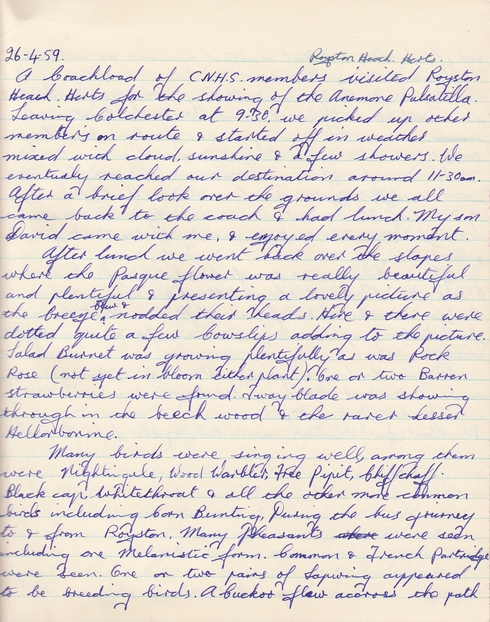 26-4-59. Royston Heath. Herts.
A Coachload of C.N.H.S. members visited Royston
Heath. Herts for the showing of the Anemone Pulsatilla.
Leaving Colchester at 9.30, we picked up other
members on route & started off in weather
mixed with cloud, sunshine & a few showers. We
eventually reached our destination around 11-30am.
After a brief look over the grounds we all
came back to the coach & had lunch. My son
David came with me, & enjoyed every moment.
After lunch we went back over the slopes
where the Pasque flower was really beautiful
and plentiful & presenting a lovely picture as
the breeze blew & nodded their heads. Here & there were
dotted quite a few Cowslips adding to the picture.
Salad Burnet was growing plentifully as was Rock
Rose (not yet in bloom either plant). One or two Barren
strawberries were found. Twayblade was showing
through in the beech wood & the rarer Lesser
Helleborine.
Many birds were singing well among them
were Nightingale, Wood Warbler, Tree Pipit, Chiffchaff.
Black cap, Whitethroat & all the other more common
birds including Corn Bunting, During the bus journey
to & from Royston, Many Pheasants were seen
including one Melanistic form. Common & French Partridge
were seen. One or two pairs of Lapwing appeared
to be breeding birds. A Cuckoo flew accross the path